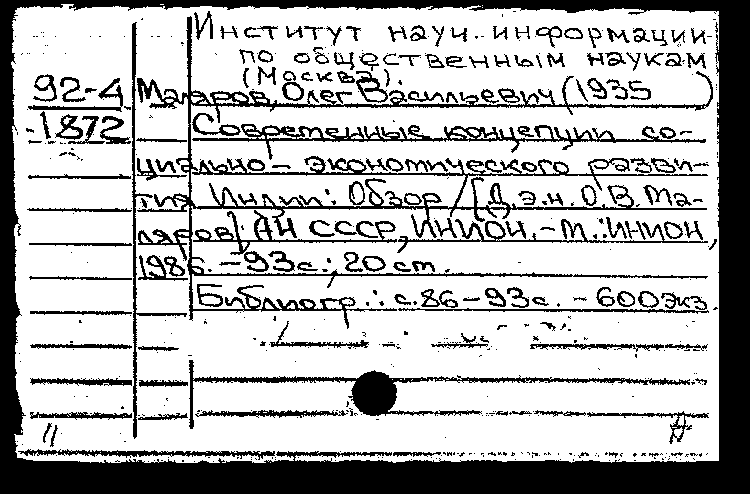 Институт науч. информации
по общественным наукам
(Москва).
92-4 Маляров, Олег Васильевич (1935 )
-1872 Современные концепции со-
циально-экономического разви-
тия Индии: Обзор / [Д.э.н. О.В. Ма-
ляров]; АН СССР, ИНИОН. - М.: ИНИОН,
1986. - 93 с.; 20 см.
Библиогр.: с. 86-93 с. - 600 экз.